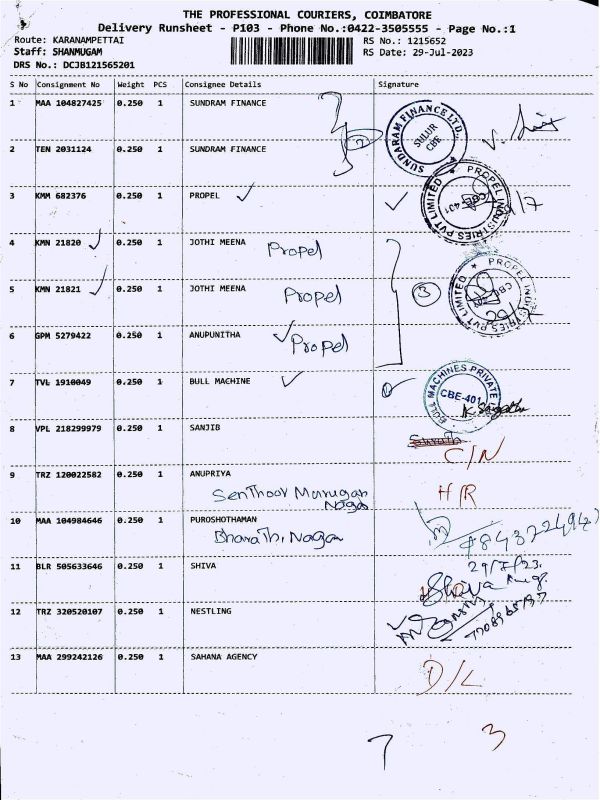 THE PROFESSIONAL COURIERS, COIMBATORE
Delivery Runsheet - P103 - Phone No.:0422-3505555 - Page No.:1
Route: KARANAMPETTAI
RS No.: 1215652
Staff: SHANMUGAM
RS Date: 29-Jul-2023
DRS No.: DCJB121565201
S No Consignment No Weight PCS Consignee Details Signature
1 MAA 104827425 0.250 1 SUNDRAM FINANCE
SUNDARAM FINANCE LTD.
SULUR
CBE
2
2 TEN 2031124 0.250 1 SUNDRAM FINANCE
3 KMM 682376 0.250 1 PROPEL
PROPEL INDUSTRIES PVT LIMITED
4 KMN 21820 0.250 1 JOTHI MEENA
Propel
5 KMN 21821 0.250 1 JOTHI MEENA
Propel
3
PROPEL INDUSTRIES PVT LIMITED
6 GPM 5279422 0.250 1 ANUPUNITHA
Propel
7 TVL 1910049 0.250 1 BULL MACHINE
BULL MACHINES PRIVATE
CBE-401
8 VPL 218299979 0.250 1 SANJIB
C/N
9 TRZ 120022582 0.250 1 ANUPRIYA
Senthoor Murugan
Nagar
H/R
10 MAA 104984646 0.250 1 PUROSHOTHAMAN
Bharathi Nagar
11 BLR 505633646 0.250 1 SHIVA
29/7/23.
Shiva
12 TRZ 320520107 0.250 1 NESTLING
13 MAA 299242126 0.250 1 SAHANA AGENCY
D/L
7 3